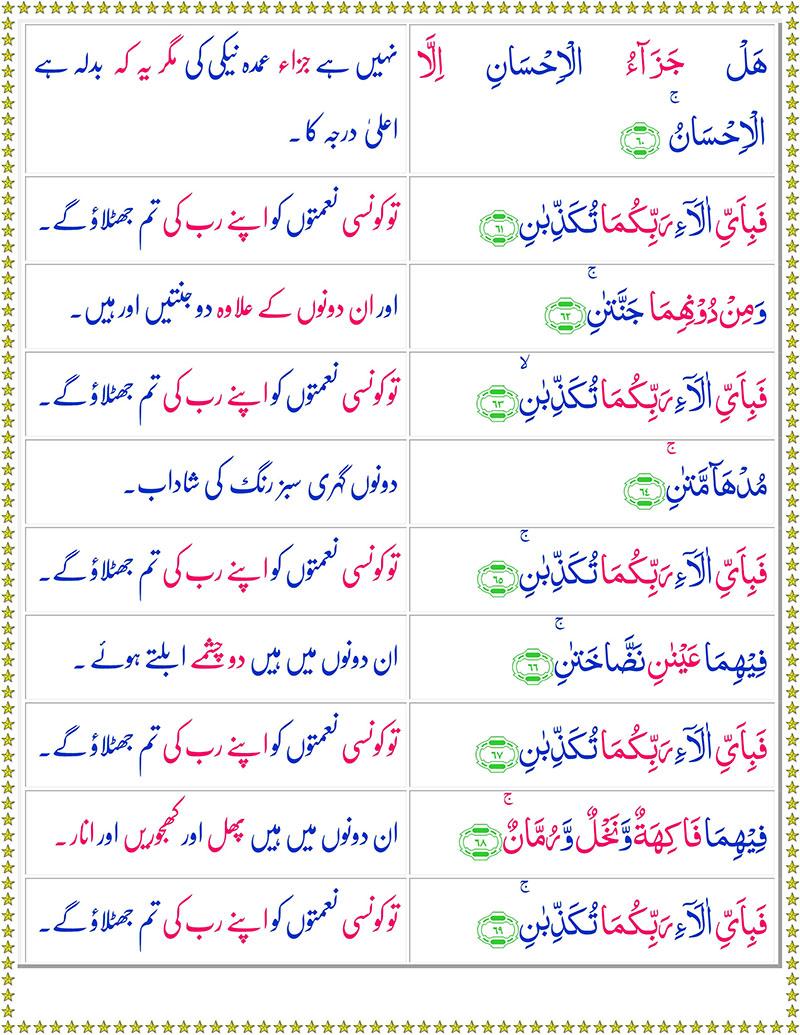 هَلْ جَزَآءُ الْاِحْسَانِ اِلَّا
الْاِحْسَانُ ۚ ﴿٦٠﴾
نہیں ہے جزاء عمدہ نیکی کی مگر یہ کہ بدلہ ہے
اعلیٰ درجہ کا۔
فَبِاَيِّ اٰلَآءِ رَبِّكُمَا تُكَذِّبٰنِ ﴿٦١﴾
تو کونسی نعمتوں کو اپنے رب کی تم جھٹلاؤ گے۔
وَمِنْ دُوْنِهِمَا جَنَّتٰنِ ۚ ﴿٦٢﴾
اور ان دونوں کے علاوہ دو جنتیں اور ہیں۔
فَبِاَيِّ اٰلَآءِ رَبِّكُمَا تُكَذِّبٰنِ ۙ ﴿٦٣﴾
تو کونسی نعمتوں کو اپنے رب کی تم جھٹلاؤ گے۔
مُدْهَآمَّتٰنِ ۚ ﴿٦٤﴾
دونوں گہری سبز رنگ کی شاداب۔
فَبِاَيِّ اٰلَآءِ رَبِّكُمَا تُكَذِّبٰنِ ۚ ﴿٦٥﴾
تو کونسی نعمتوں کو اپنے رب کی تم جھٹلاؤ گے۔
فِيْهِمَا عَيْنٰنِ نَضَّاخَتٰنِ ۚ ﴿٦٦﴾
ان دونوں میں ہیں دو چشمے ابلتے ہوئے ۔
فَبِاَيِّ اٰلَآءِ رَبِّكُمَا تُكَذِّبٰنِ ﴿٦٧﴾
تو کونسی نعمتوں کو اپنے رب کی تم جھٹلاؤ گے۔
فِيْهِمَا فَاكِهَةٌ وَّنَخْلٌ وَّرُمَّانٌ ۚ ﴿٦٨﴾
ان دونوں میں ہیں پھل اور کھجوریں اور انار۔
فَبِاَيِّ اٰلَآءِ رَبِّكُمَا تُكَذِّبٰنِ ۚ ﴿٦٩﴾
تو کونسی نعمتوں کو اپنے رب کی تم جھٹلاؤ گے۔